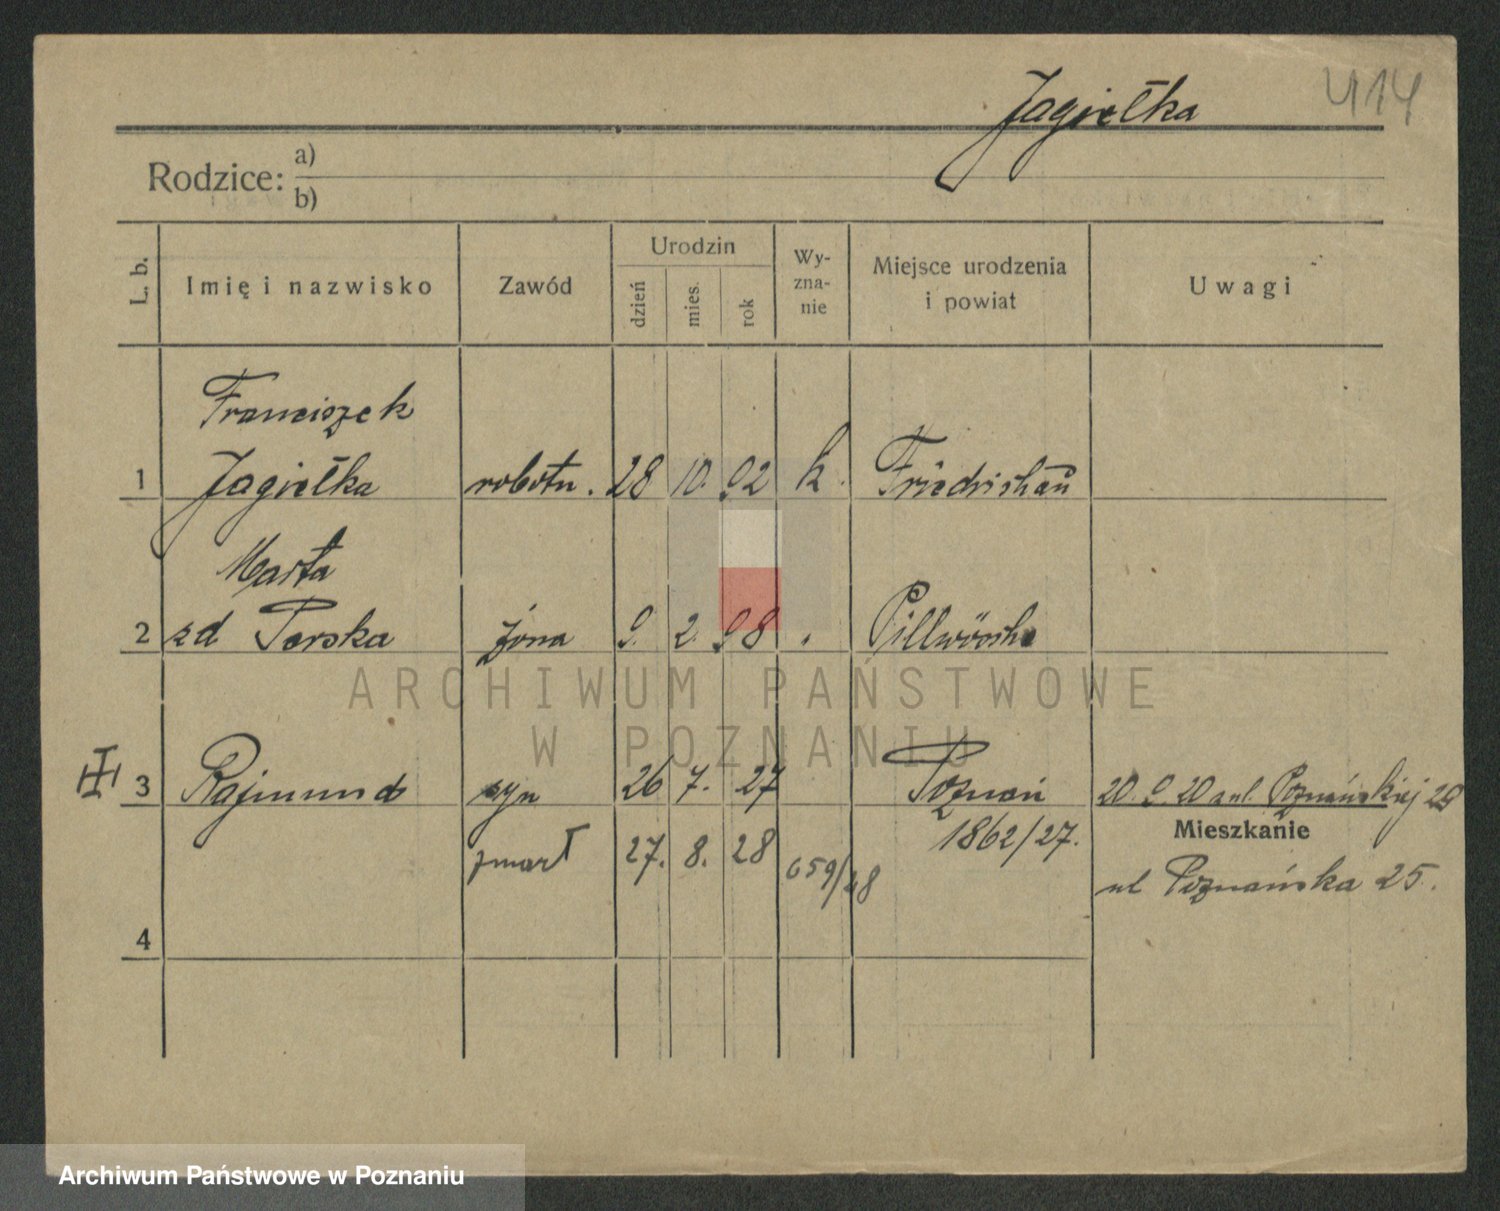 Jagiełka 414
Rodzice: a)
b)
L. b. Imię i nazwisko Zawód Urodzin dzień mies. rok Wy-zna-nie Miejsce urodzenia i powiat Uwagi
Franciszek
1 Jagiełka robotn. 28 10. 92 k. Friedrichau
Marta
2 zd Perska żona 9. 2. 98 Pillwösche
3 Rajmund syn 26 7. 27 Poznań 20. 9. 20 z ul. Poznańskiej
1862/27. Mieszkanie
zmarł 27. 8. 28 659/28 ul Poznańska 25.
4
ARCHIWUM PAŃSTWOWE
W POZNANIU
Archiwum Państwowe w Poznaniu